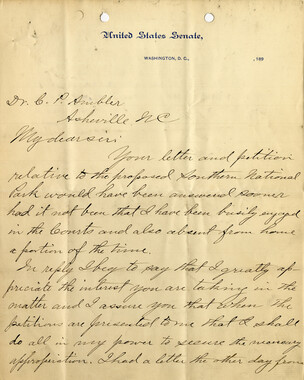 United States Senate,
WASHINGTON, D. C., , 189
Dr. C. P. Ambler
Asheville NC
My dear sir:
Your letter and petition
relative to the proposed Southern National
Park would have been answered sooner
had it not been that I have been busily engaged
in the Courts and also absent from home
a portion of the time.
In reply I beg to say that I greatly ap-
preciate the interest you are taking in the
matter and I assure you that when the
petitions are presented to me that I shall
do all in my power to secure the necessary
appropriation. I had a letter the other day from